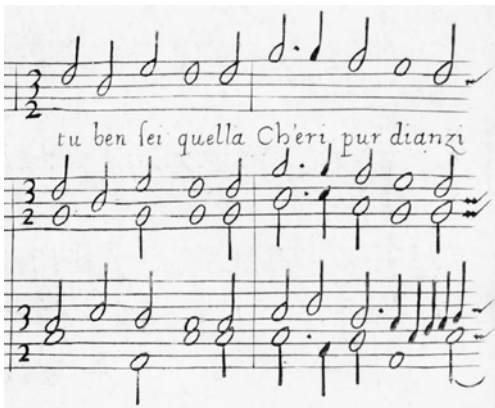 3
2
tu ben ſei quella Ch'eri pur dianzi
3
2
3
2